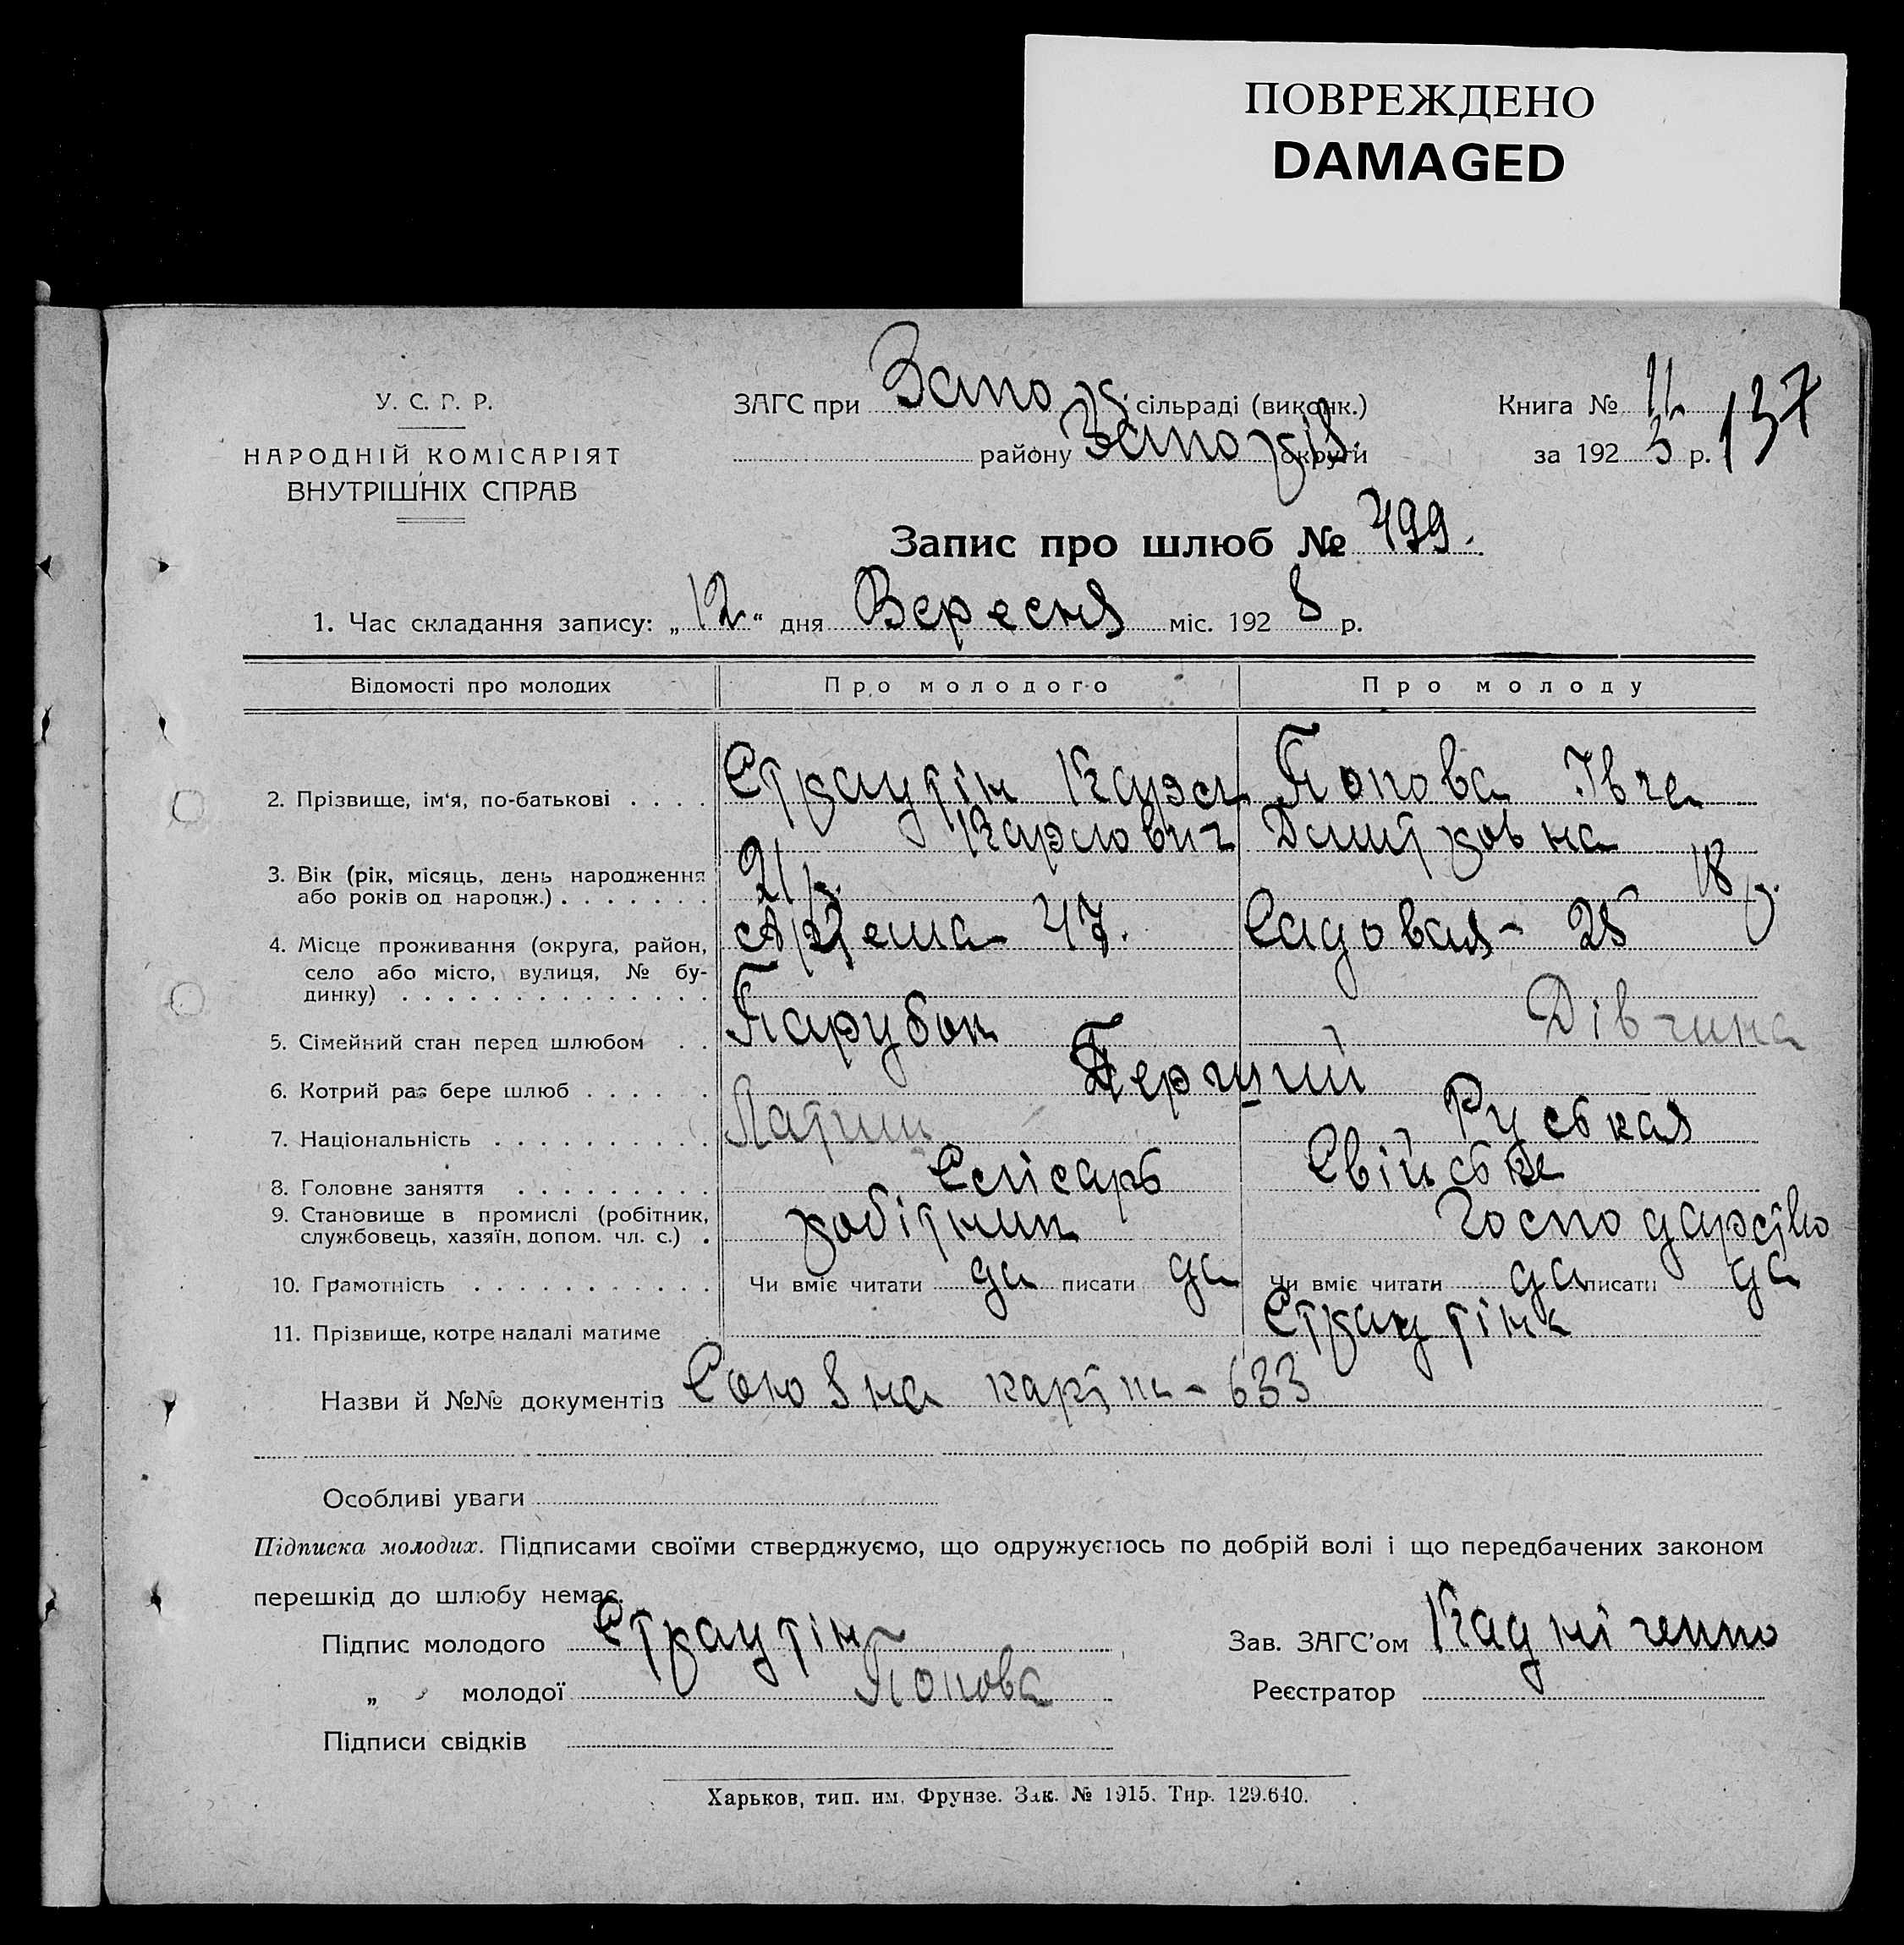 ПОВРЕЖДЕНО
DAMAGED
У. С. Р. Р.
НАРОДНІЙ КОМІСАРІЯТ
ВНУТРІШНІХ СПРАВ
ЗАГС при Запо різ. сільраді (виконк.)
району Запо різ. округи
Книга № 11
за 192 5 р.
137
Запис про шлюб № 499.
1. Час складання запису: „12“ дня Вересня міс. 192 5 р.
Відомості про молодих Про молодого Про молоду
2. Прізвище, ім'я, по-батькові . . . . Страутін Карл Попова Івга
Карлович Дмитровна
3. Вік (рік, місяць, день народження або років од народж.) . . . . . . . 21 р. 18 р.
4. Місце проживання (округа, район, село або місто, вулиця, № будинку) . . . . . . . . . . . . . . Артема - 47. Садовая - 25
5. Сімейний стан перед шлюбом . . Парубок Дівчина
6. Котрий раз бере шлюб . . . . . . Перший
7. Національність . . . . . . . . . . Латиш Руськая
8. Головне заняття . . . . . . . . . Слісарь Свійське
9. Становище в промислі (робітник, службовець, хазяїн, допом. чл. с.) . робітник Господарство
10. Грамотність . . . . . . . . . . . Чи вміє читати да писати да Чи вміє читати да писати да
11. Прізвище, котре надалі матиме Страутіна
Назви й №№ документів Союзна картка - 633
Особливі уваги
Підписка молодих. Підписами своїми стверджуємо, що одружуємось по добрій волі і що передбачених законом
перешкід до шлюбу немає.
Підпис молодого Страутін Зав. ЗАГС'ом
„ молодої Попова Реєстратор
Підписи свідків
Харьков, тип. им. Фрунзе. Зак. № 1915. Тир. 129.640.